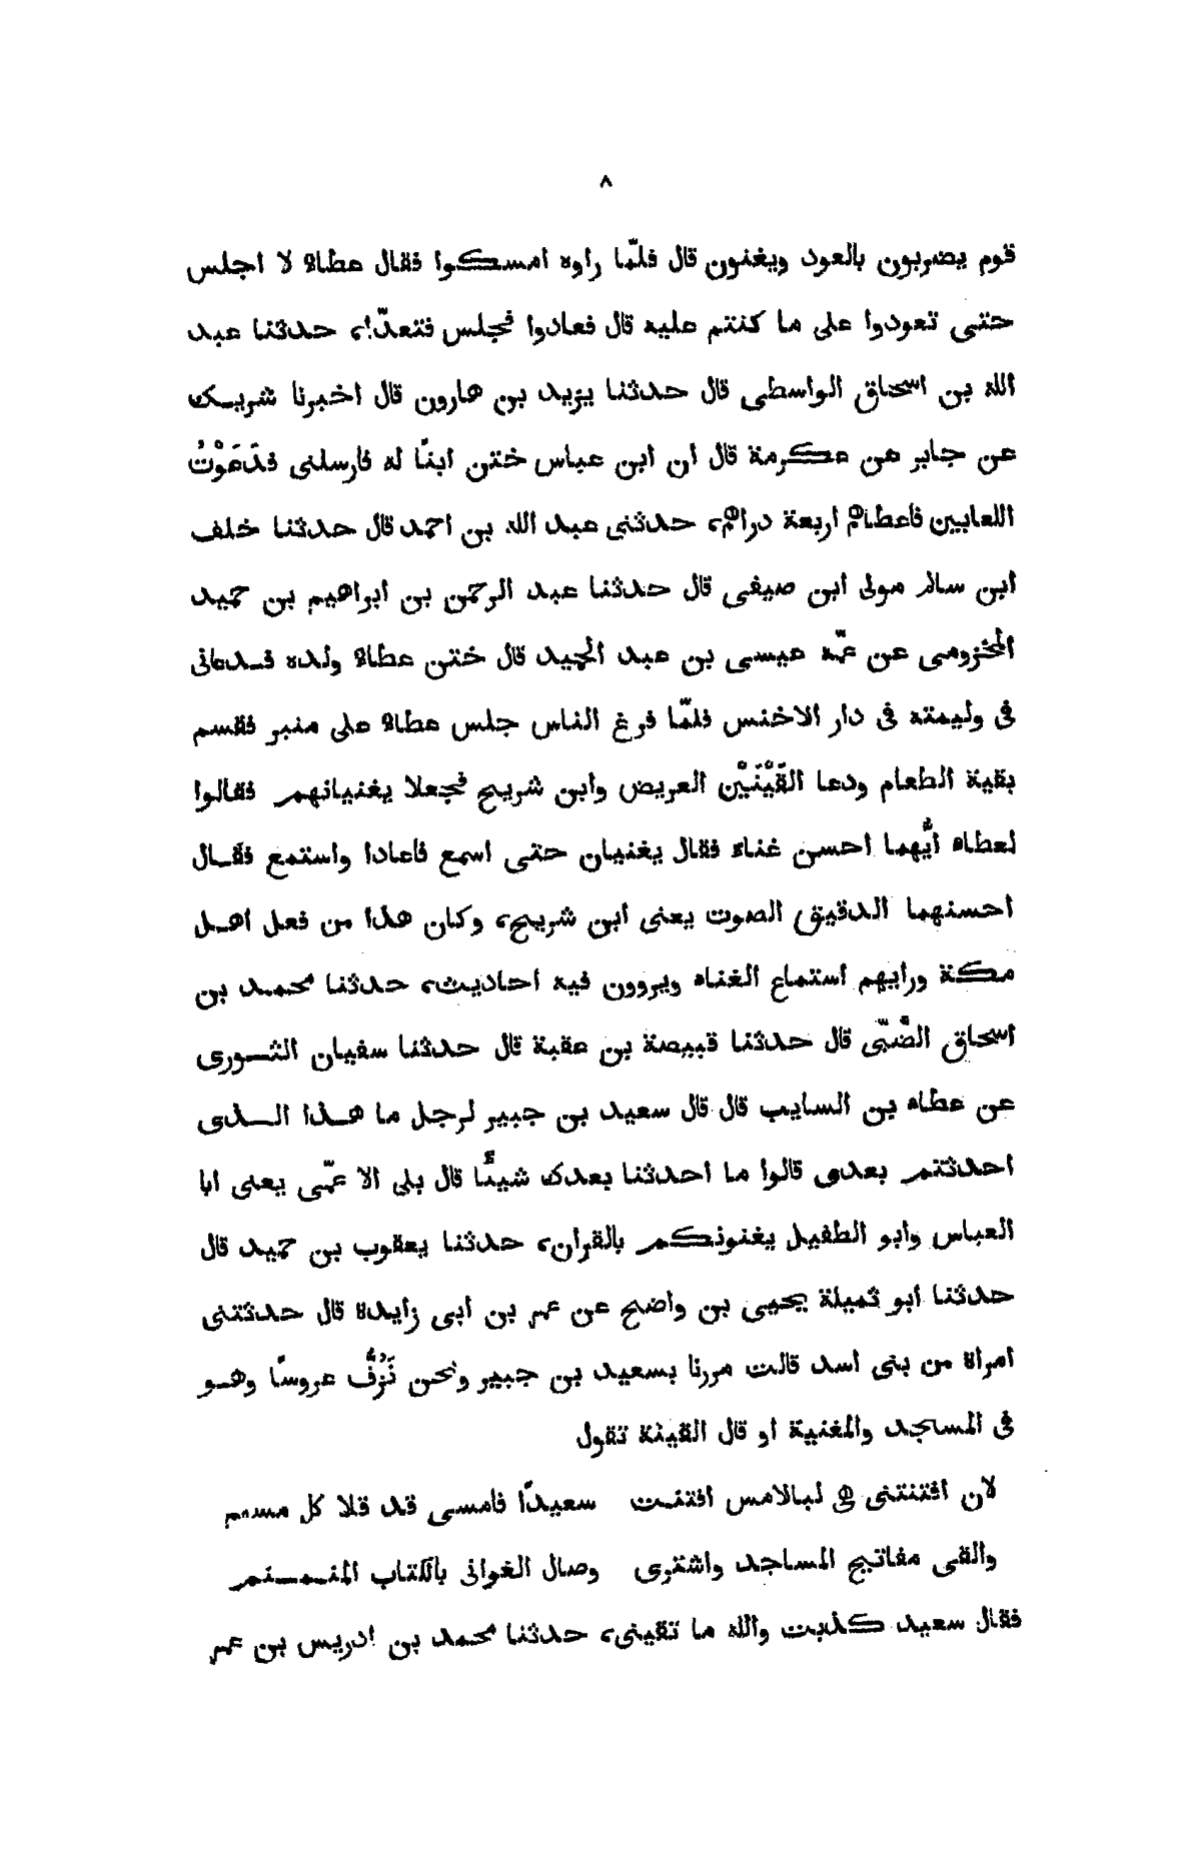 ٨
قوم يضربون بالعود ويغنون قال فلمّا راوه امسكوا فقال عطاء لا اجلس
حتى تعودوا على ما كنتم عليه قال فعادوا فجلس فتعدّا، حدثنا عبد
الله بن اسحاق الواسطى قال حدثنا يزيد بن هارون قال اخبرنا شريك
عن جابر عن عكرمة قال ان ابن عباس ختن ابنًا له فارسلنى فدَعَوْتُ
اللعابين فاعطاهم اربعة دراهم، حدثنى عبد الله بن احمد قال حدثنا خلف
ابن سالم مولى ابن صيفى قال حدثنا عبد الرحمن بن ابراهيم بن حميد
المخزومى عن عمّه عيسى بن عبد الحميد قال ختن عطاء ولده فدعانى
فى وليمته فى دار الاخنس فلمّا فرغ الناس جلس عطاء على منبر فقسم
بقية الطعام ودعا القَيْنَيْن العريض وابن شريح فجعلا يغنيانهم فقالوا
لعطاء أيُّهما احسن غناء فقال يغنيان حتى اسمع فاعادا واستمع فقال
احسنهما الدقيق الصوت يعنى ابن شريح، وكان هذا من فعل اهل
مكة ورايهم استماع الغناء ويروون فيه احاديث، حدثنا محمد بن
اسحاق الضَّبّى قال حدثنا قبيصة بن عقبة قال حدثنا سفيان الثورى
عن عطاء بن السايب قال قال سعيد بن جبير لرجل ما هذا الذى
احدثتم بعدى قالوا ما احدثنا بعدك شيئًا قال بلى الا عمّى يعنى ابا
العباس وابو الطفيل يغنونكم بالقران، حدثنا يعقوب بن حميد قال
حدثنا ابو ثميلة يحيى بن واضح عن عمر بن ابى زايدة قال حدثتنى
امراة من بنى اسد قالت مررنا بسعيد بن جبير ونحن نَزُفُّ عروسًا وهو
فى المسجد والمغنية او قال القينة تقول
لان افتنتنى هى لبالامس افتنت سعيدًا فامسى قد قلا كل مسلم
والقى مفاتيح المساجد واشترى وصال الغوانى بالكتاب المنمنم
فقال سعيد كذبت والله ما تقينى، حدثنا محمد بن ادريس بن عمر